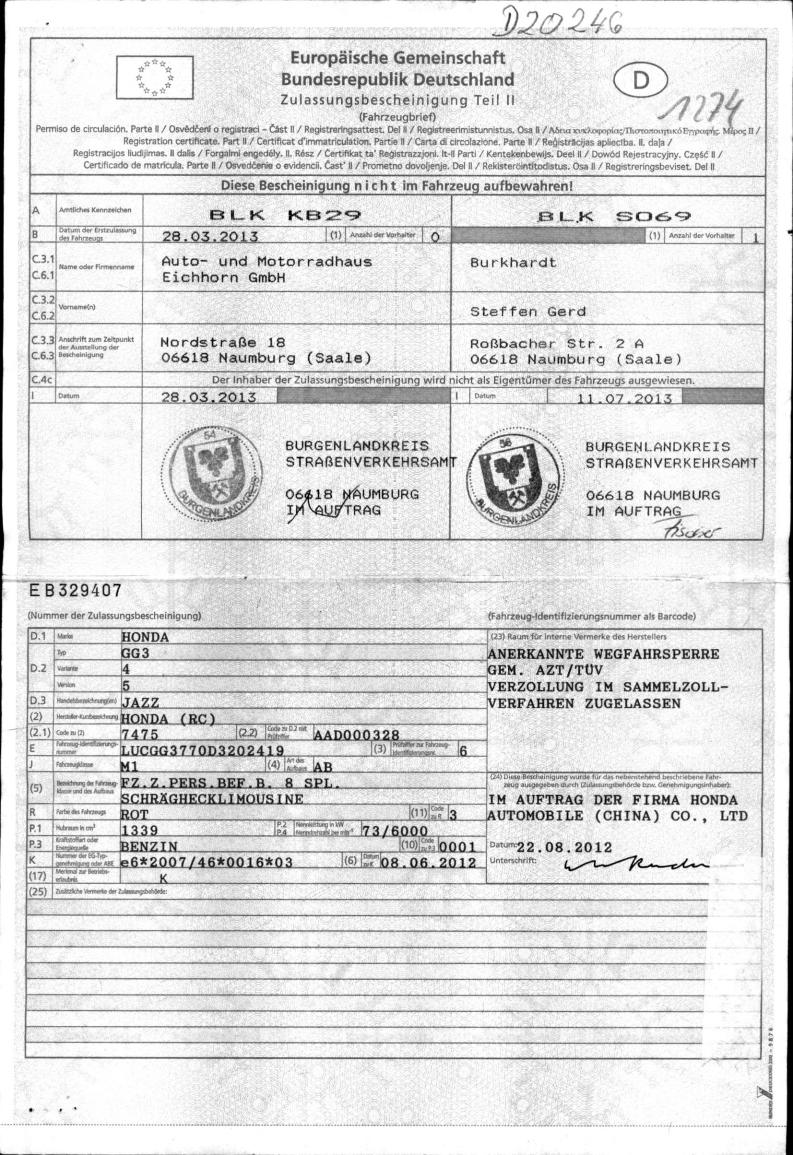 D20246
Europäische Gemeinschaft
Bundesrepublik Deutschland
Zulassungsbescheinigung Teil II
(Fahrzeugbrief)
D
1274
Permiso de circulación. Parte II / Osvědčení o registraci – Část II / Registreringsattest. Del II / Registreerimistunnistus. Osa II / Άδεια κυκλοφορίας/Πιστοποιητικό Εγγραφής. Μέρος II /
Registration certificate. Part II / Certificat d'immatriculation. Partie II / Carta di circolazione. Parte II / Reģistrācijas apliecība. II. daļa /
Registracijos liudijimas. II dalis / Forgalmi engedély. II. Rész / Ċertifikat ta' Reġistrazzjoni. It-II Parti / Kentekenbewijs. Deel II / Dowód Rejestracyjny. Część II /
Certificado de matrícula. Parte II / Osvedčenie o evidencii. Časť II / Prometno dovoljenje. Del II / Rekisteröintitodistus. Osa II / Registreringsbeviset. Del II
Diese Bescheinigung nicht im Fahrzeug aufbewahren!
A Amtliches Kennzeichen BLK KB29 BLK SO69
B Datum der Erstzulassung des Fahrzeugs 28.03.2013 (1) Anzahl der Vorhalter 0 (1) Anzahl der Vorhalter 1
C.3.1 C.6.1 Name oder Firmenname Auto- und Motorradhaus Burkhardt
Eichhorn GmbH
C.3.2 C.6.2 Vorname(n) Steffen Gerd
C.3.3 Anschrift zum Zeitpunkt der Ausstellung der Nordstraße 18 Roßbacher Str. 2 A
C.6.3 Bescheinigung 06618 Naumburg (Saale) 06618 Naumburg (Saale)
C.4c Der Inhaber der Zulassungsbescheinigung wird nicht als Eigentümer des Fahrzeugs ausgewiesen.
I Datum 28.03.2013 I Datum 11.07.2013
54 BURGENLANDKREIS 56 BURGENLANDKREIS
STRAßENVERKEHRSAMT STRAßENVERKEHRSAMT
BURGENLANDKREIS 06618 NAUMBURG BURGENLANDKREIS 06618 NAUMBURG
IM AUFTRAG IM AUFTRAG
Fischer
EB329407
(Nummer der Zulassungsbescheinigung) (Fahrzeug-Identifizierungsnummer als Barcode)
D.1 Marke HONDA
D.2 Typ GG3
Variante 4
Version 5
D.3 Handelsbezeichnung(en) JAZZ
(2) Hersteller-Kurzbezeichnung HONDA (RC)
(2.1) Code zu (2) 7475 (2.2) Code zu D.2 mit Prüfziffer AAD000328
E Fahrzeug-Identifizierungsnummer LUCGG3770D3202419 (3) Prüfziffer zur Fahrzeug-Identifizierungsnr. 6
J Fahrzeugklasse M1 (4) Art des Aufbaus AB
(5) Bezeichnung der Fahrzeugklasse und des Aufbaus FZ.Z.PERS.BEF.B. 8 SPL.
SCHRÄGHECKLIMOUSINE
R Farbe des Fahrzeugs ROT (11) Code zu R 3
P.1 Hubraum in cm³ 1339 P.2 P.4 Nennleistung in kW Nenndrehzahl bei min⁻¹ 73/6000
P.3 Kraftstoffart oder Energiequelle BENZIN (10) Code zu P.3 0001
K Nummer der EG-Typgenehmigung oder ABE e6*2007/46*0016*03 (6) Datum zu K 08.06.2012
(17) Merkmal zur Betriebserlaubnis K
(25) Zusätzliche Vermerke der Zulassungsbehörde:
(23) Raum für interne Vermerke des Herstellers
ANERKANNTE WEGFAHRSPERRE
GEM. AZT/TÜV
VERZOLLUNG IM SAMMELZOLL-
VERFAHREN ZUGELASSEN
(24) Diese Bescheinigung wurde für das nebenstehend beschriebene Fahr-
zeug ausgegeben durch (Zulassungsbehörde bzw. Genehmigungsinhaber):
IM AUFTRAG DER FIRMA HONDA
AUTOMOBILE (CHINA) CO., LTD
Datum: 22.08.2012
Unterschrift: